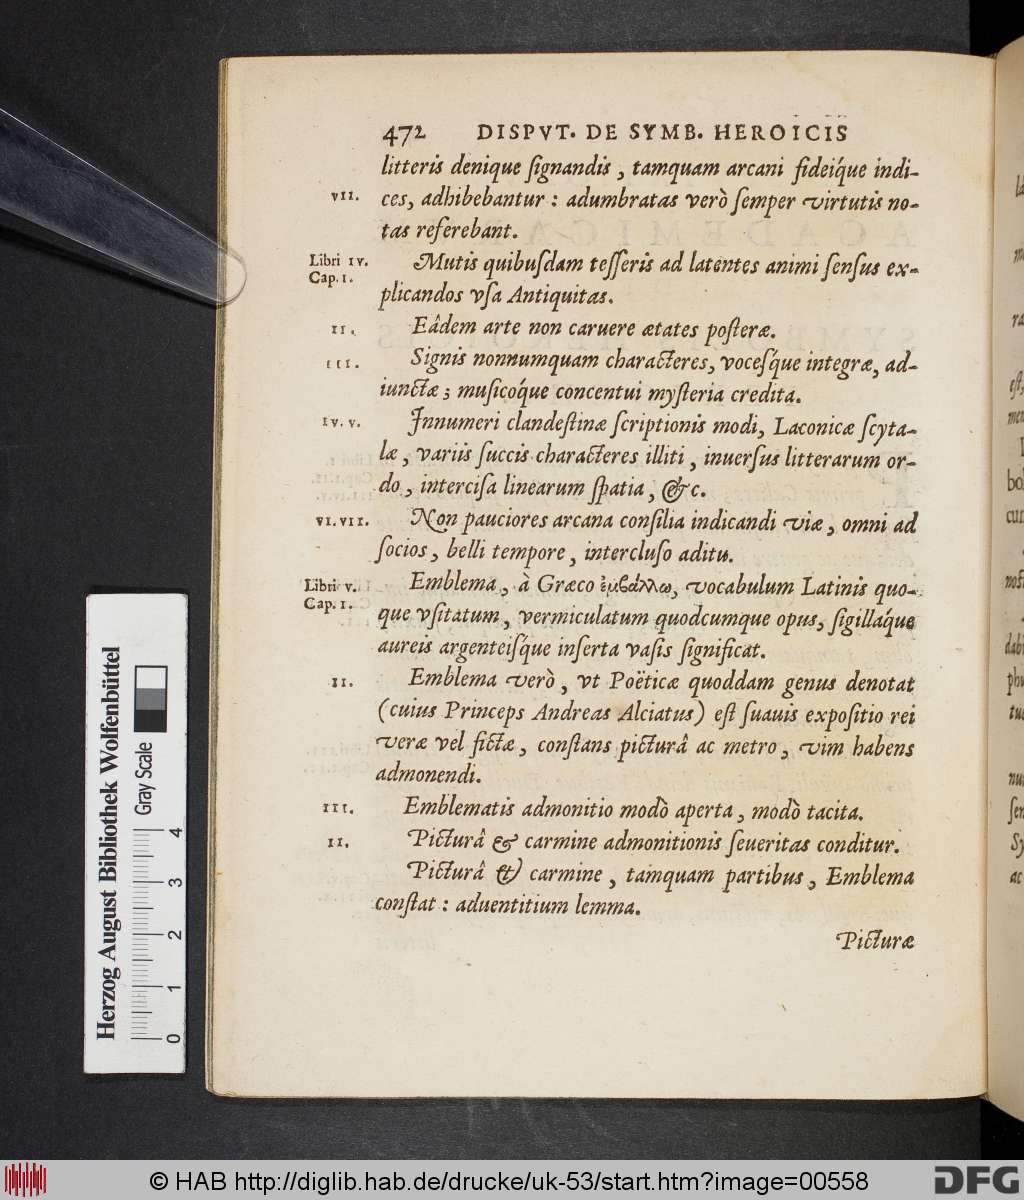 472 DISPVT. DE SYMB. HEROICIS
litteris denique ſignandis, tamquam arcani fideíque indi-
VII. ces, adhibebantur: adumbratas verò ſemper virtutis no-
tas referebant.
Libri IV. Mutis quibuſdam teſſeris ad latentes animi ſenſus ex-
Cap. I. plicandos vſa Antiquitas.
II. Eâdem arte non caruere ætates poſteræ.
III. Signis nonnumquam characteres, voceſque integræ, ad-
iunctæ; muſicoque concentui myſteria credita.
IV. V. Innumeri clandeſtinæ ſcriptionis modi, Laconicæ ſcyta-
læ, variis ſuccis characteres illiti, inuerſus litterarum or-
do, interciſa linearum ſpatia, &c.
VI. VII. Non pauciores arcana conſilia indicandi viæ, omni ad
ſocios, belli tempore, intercluſo aditu.
Libri V. Emblema, à Græco ἐμβάλλω, vocabulum Latinis quo-
Cap. I. que vſitatum, vermiculatum quodcumque opus, ſigilláque
aureis argenteiſque inſerta vaſis ſignificat.
II. Emblema verò, vt Poëticæ quoddam genus denotat
(cuius Princeps Andreas Alciatus) eſt ſuauis expoſitio rei
veræ vel fictæ, conſtans picturâ ac metro, vim habens
admonendi.
III. Emblematis admonitio modò aperta, modò tacita.
II. Picturâ & carmine admonitionis ſeueritas conditur.
Picturâ & carmine, tamquam partibus, Emblema
conſtat: aduentitium lemma.
Picturæ
Herzog August Bibliothek Wolfenbüttel
Gray Scale
0 1 2 3 4
© HAB http://diglib.hab.de/drucke/uk-53/start.htm?image=00558
DFG